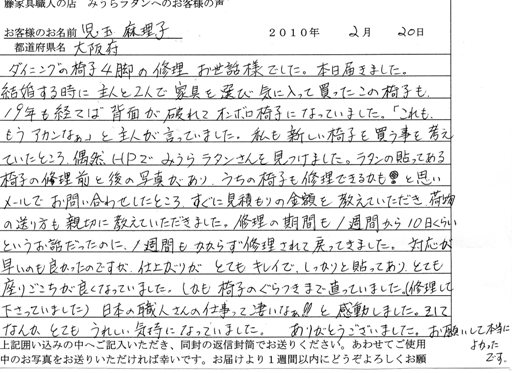 藤家具職人の店 みうらラタンへのお客様の声
お客様のお名前 児玉 麻理子 2010年 2月 20日
都道府県名 大阪府
ダイニングの椅子4脚の修理 お世話様でした。本日届きました。
結婚する時に 主人と2人で 家具を選び 気に入って買ったこの椅子も、
19年も経てば 背面が 破れて オンボロ椅子になっていました。「これも、
もうアカンなぁ」と 主人が言っていました。私も 新しい椅子を買う事を考え
ていたところ、偶然 HPで みうらラタンさんを見つけました。ラタンの貼ってある
椅子の修理前と後の写真があり、うちの椅子も修理できるかも!と思い
メールでお問い合わせしたところ、すぐに見積もりの金額を教えていただき 荷物
の送り方も 親切に教えていただきました。修理の期間も 1週間から10日くらい
というお話だったのに、1週間も かからず 修理されて 戻ってきました。対応が
早いのも良かったのですが、仕上がりが とても キレイで、しっかりと貼ってあり、とても
座りごこちが良くなっていました。しかも 椅子のぐらつきまで直っていました。(修理して
下さっていました) 日本の職人さんの仕事って凄いなぁ!!と 感動しました。そして
なんか、とても うれしい気持になっていました。 ありがとうございました。お願いして本当に
よかった
です。
上記囲い込みの中へご記入いただき、同封の返信封筒でお送りください。あわせてご使用
中のお写真をお送りいただければ幸いです。お届けより1週間以内にどうぞよろしくお願